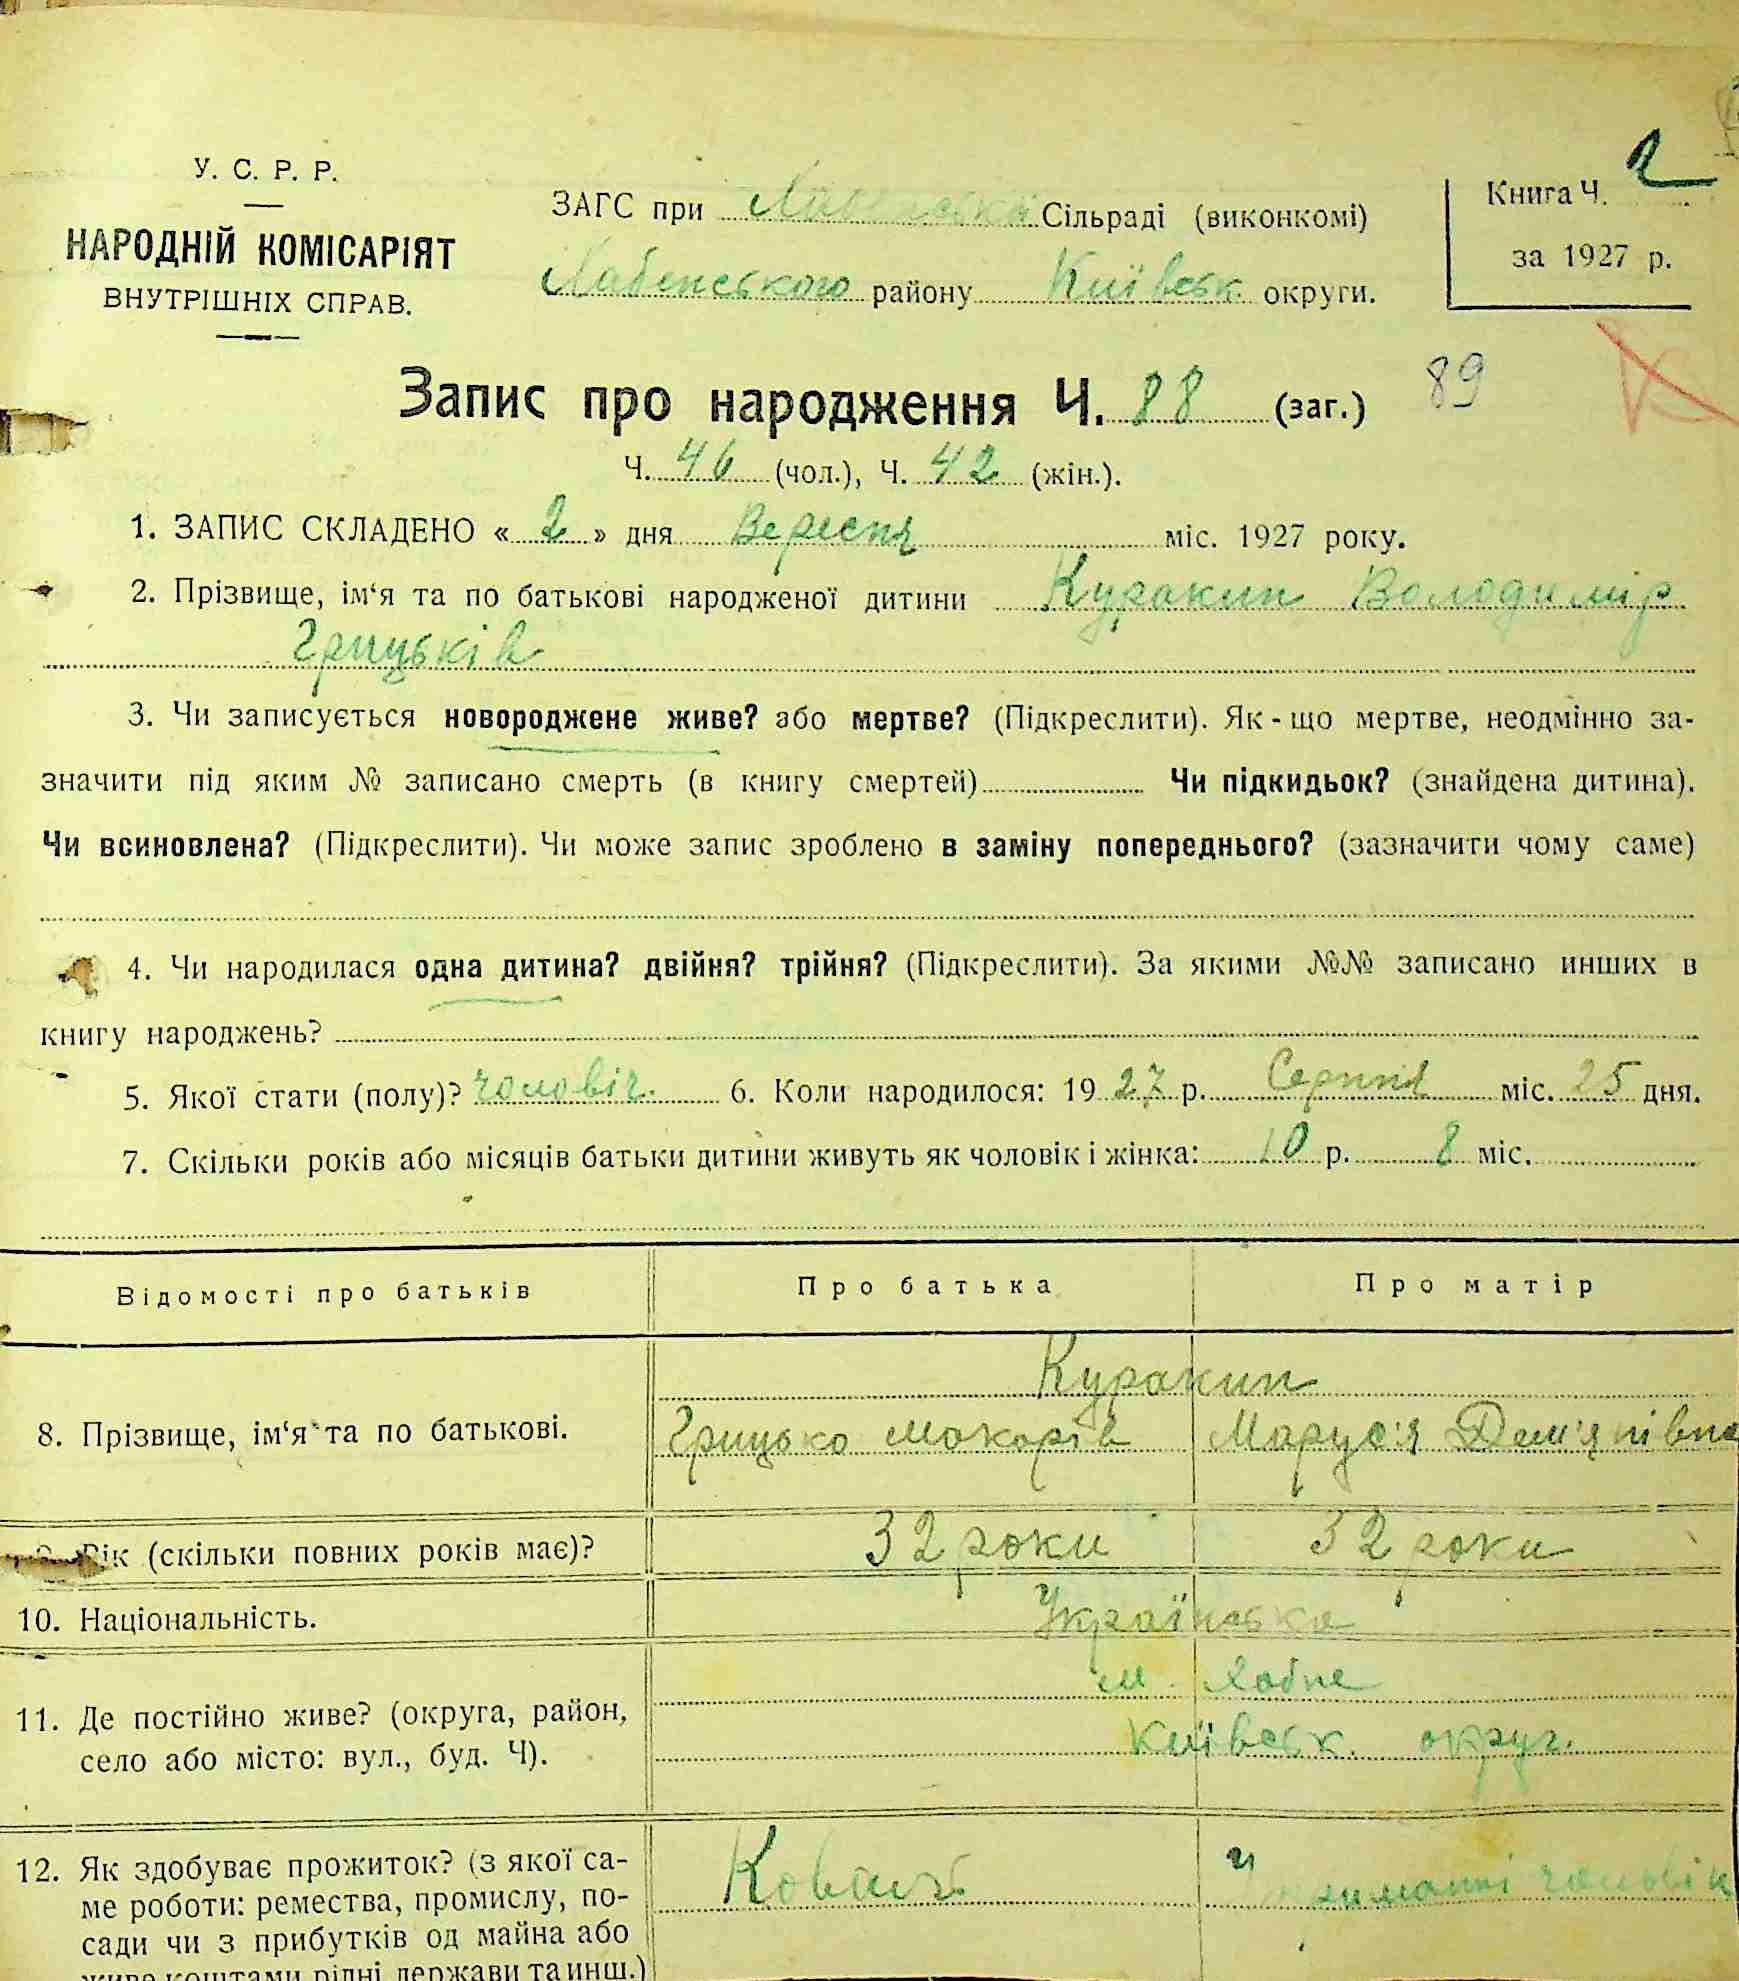 У. С. Р. Р.
НАРОДНІЙ КОМІСАРІЯТ
ВНУТРІШНІХ СПРАВ.
ЗАГС при Сільраді (виконкомі)
Лабенського району Київськ. округи.
Книга Ч. 2
за 1927 р.
Запис про народження Ч. 88 (заг.) 89
Ч. 46 (чол.), Ч. 42 (жін.).
1. ЗАПИС СКЛАДЕНО « 2 » дня Вересня міс. 1927 року.
2. Прізвище, ім‘я та по батькові народженої дитини Куракин Володимір
Грицьків
3. Чи записується новороджене живе? або мертве? (Підкреслити). Як - що мертве, неодмінно за-
значити під яким № записано смерть (в книгу смертей) Чи підкидьок? (знайдена дитина).
Чи всиновлена? (Підкреслити). Чи може запис зроблено в заміну попереднього? (зазначити чому саме)
4. Чи народилася одна дитина? двійня? трійня? (Підкреслити). За якими №№ записано инших в
книгу народжень?
5. Якої стати (полу)? чоловіч. 6. Коли народилося: 19 27 р. Серпня міс. 25 дня.
7. Скільки років або місяців батьки дитини живуть як чоловік і жінка: 10 р. 8 міс.
Відомості про батьків Про батька Про матір
Куракин
8. Прізвище, ім‘я та по батькові. Грицько Макарів Маруся Дем'янівна
9. Вік (скільки повних років має)? 32 роки 32 роки
10. Національність. Українська
11. Де постійно живе? (округа, район, м. Лабне
село або місто: вул., буд. Ч). Київськ. округ.
12. Як здобуває прожиток? (з якої са- Коваль
ме роботи: ремества, промислу, по-
сади чи з прибутків од майна або
живе коштами рідні, держави та инш.)